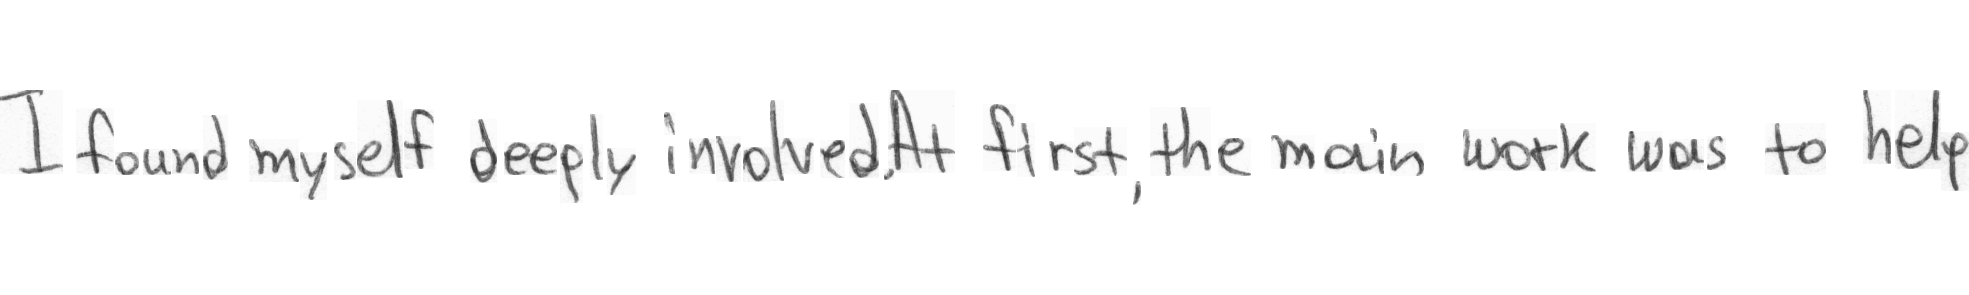 I found myself deeply involved.At first, the main work was to help